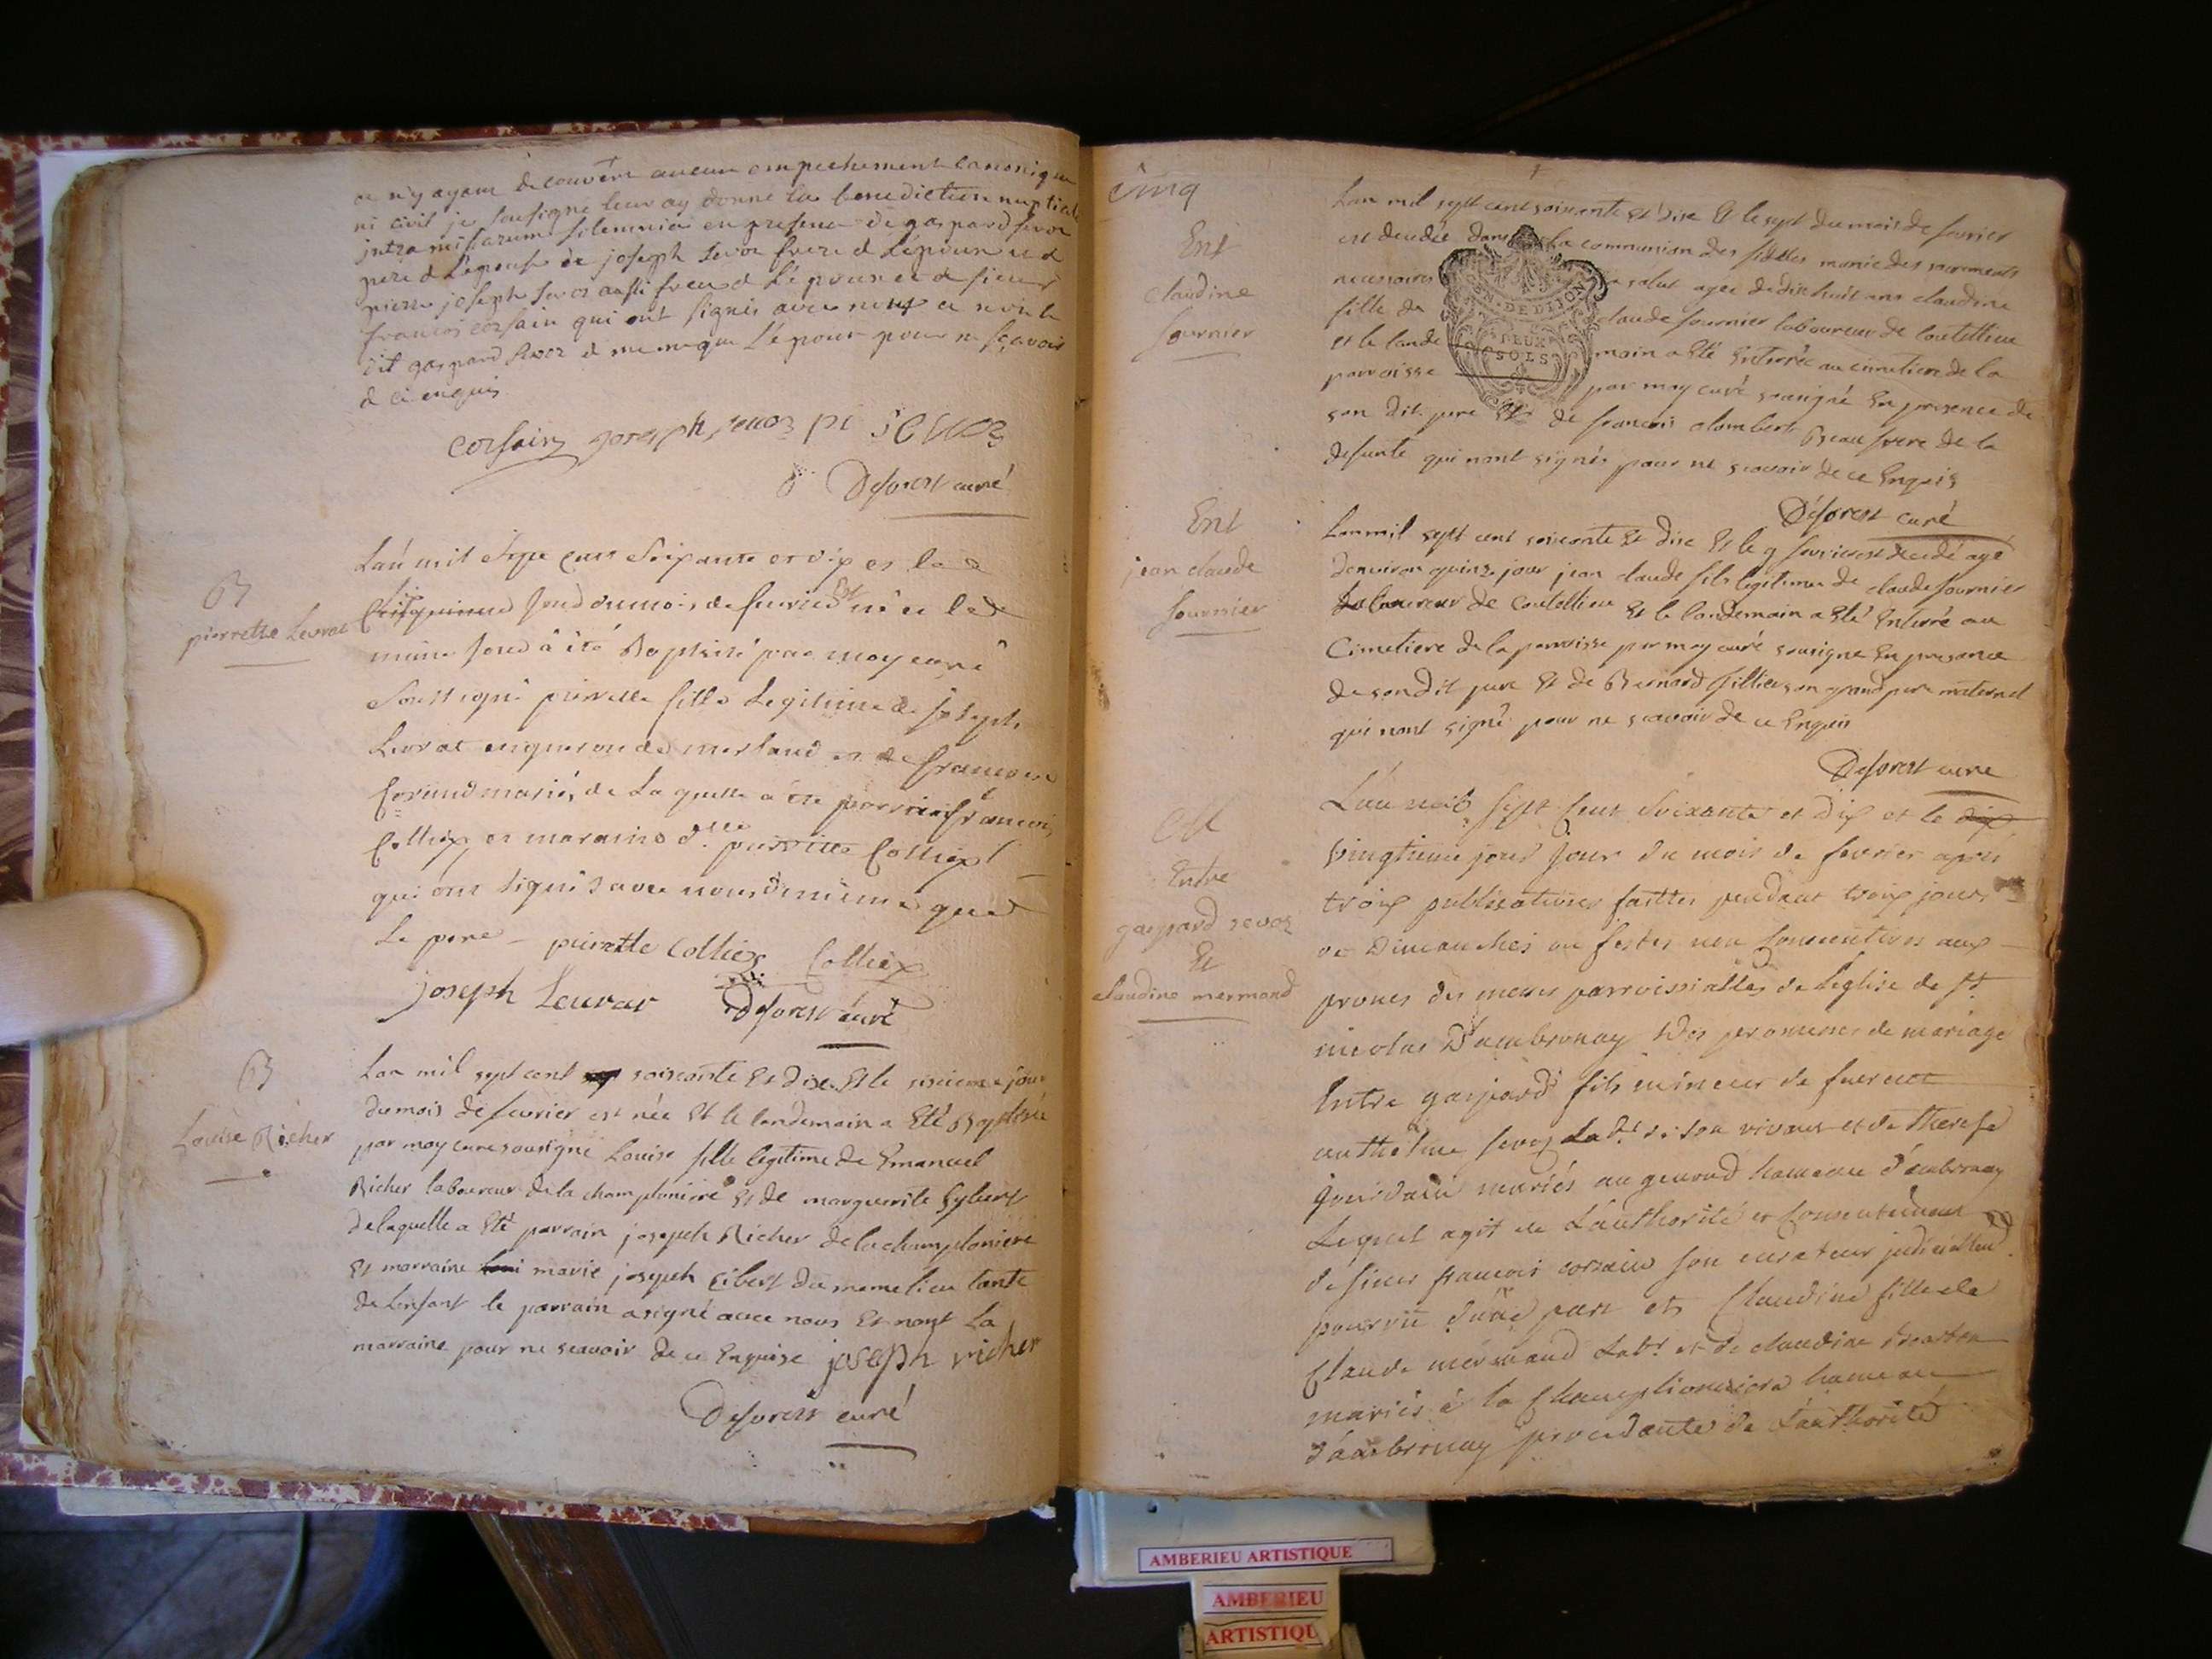 ce n'y ayant decouvert aucun empechement canonique
ni civil je sousigné leur ay donné la benediction nuptiale
intra missarum solemnia en presence de gaspard sevoz
pere d L'épouse de joseph sevoz frere d L'époux et d
pierre joseph sevoz aussi frere d L'époux et d sieur
francois corsain qui ont signés avec nous et non le
dit gaspard sevoz d meme que L'épouse pour ne sçavoir
d ce enquis
corsain joseph sevoz pi sevoz
Deforest curé
B
pierrette Levrat
L'an mil sept cent soixante et dix et le
jour du mois de fevrier est né et le
meme jour à été Baptisé par moy curé
soussigné pierrette fille Legitime de joseph
Levrat de merland et de francoise
mariés, de Laquelle a été parrain francois
Colliex et maraine d.lle pierrette Colliex
qui ont signés avec nous de meme que
Le pere pierrette Colliex Colliex
joseph Leurat Deforest curé
B
Louise Richer
Lan mil sept cent soixante Et dix Et le sixieme jour
du mois de fevrier est née Et le landemain a Eté Baptisée
par moy curé sousigné Louise fille legitime de Emanuel
Richer laboureur de la championiere Et de marguerite Gybert
de laquelle a Eté parrain joseph Richer de la championiere
Et marraine marie joseph Gibert du meme lieu tante
de Lenfant le parrain a signé avec nous Et nont La
marraine pour ne scavoir de ce Enquise joseph richer
Deforest curé
Cinq
Ent
claudine
fournier
Lan mil sept cent soixante Et dix Et le sept du mois de fevrier
est decedée dans la communion des fidelles munie des sacrements
necessaires a salut agée de dix huit ans claudine
fille de claude fournier laboureur de Coutelieu
et le lande main a Eté Enterrée au cimetiere de la
parroisse par moy curé sousigné En presence de
son dit pere Et de francois alombert Beau frere de la
defunte qui nont signés pour ne scavoir de ce Enquis
Deforest curé
GEN. DE DIJON
DEUX
SOLS
Ent
jean claude
fournier
Lan mil sept cent soixante Et dix Et le 9 fevrier est decedé agé
denviron quinze jour jean claude fils legitime de claude fournier
Laboureur de Coutelieu Et le landemain a Eté Enterré au
Cimetiere de la parroisse par moy curé sousigné En presence
de son dit pere Et de Bernard son grand pere maternel
qui nont signé pour ne scavoir de ce Enquis
Deforest curé
M
Entre
gaspard sevoz
Et
claudine mermand
L'an mil sept Cent soixante et Dix et le dix
vingtieme jour jour du mois de fevrier apres
trois publications faittes pendant trois jours
de Dimanches ou festes non Consecutives aux
prones des messes parroissialles de L'eglise de St
nicolas D'ambronay Des promesses de mariage
Entre gaspard fils mineur de fue
anthelme sevoz Lab.r de son vivant et de Therese
mariés au genoud hameau d'ambronay
Lequel agit de L'authorité et Consentement
de sieur francois corsain son curateur judiciellement
pourvû d'une part et Claudine fille de
Claude mermand Lab.r et de claudine
mariés à la Championiere hameau
d'ambronay procedante de L'authorité
AMBERIEU ARTISTIQUE
AMBERIEU
ARTISTIQU